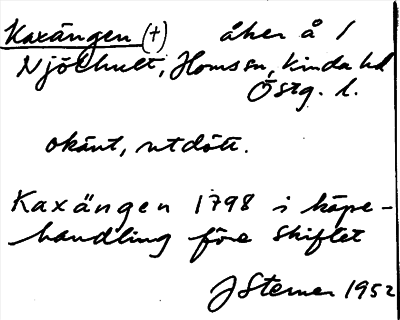 Kaxängen (†) åker å 1
Njölhult, Homssn, Kinda hd
Östg. l.
okänt, utdött.
Kaxängen 1798 i köpe-
handling före skiftet
J Sterner 1952